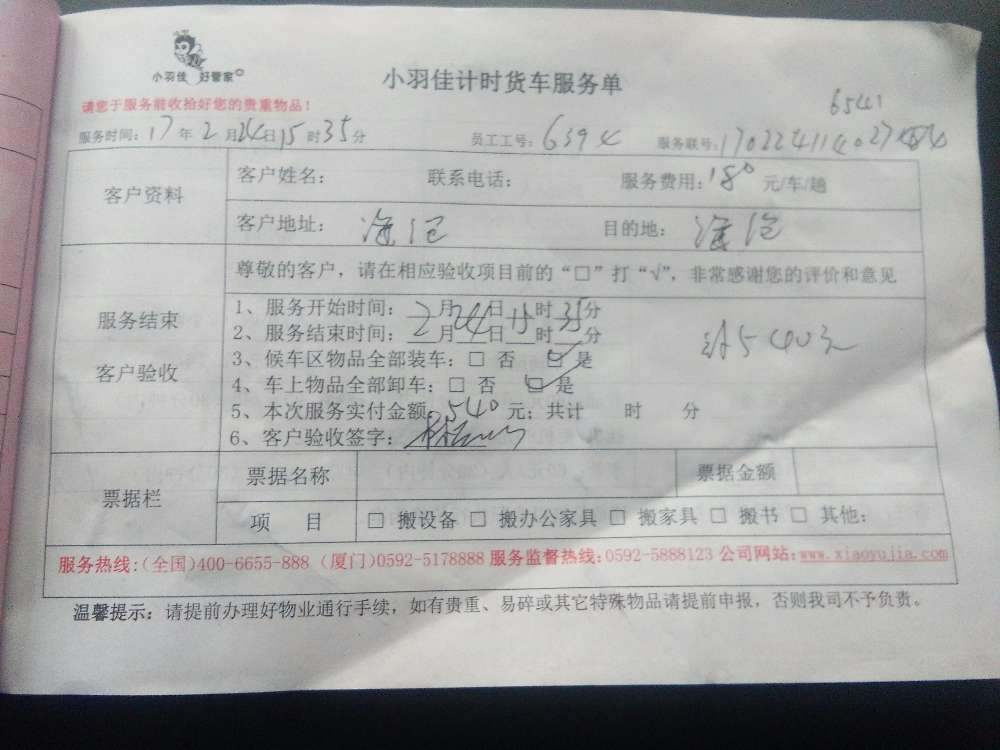 小羽佳 好管家
小羽佳计时货车服务单
请您于服务前收拾好您的贵重物品！
6541
服务时间：17年2月24日15时35分 员工工号：6394 服务联号：
客户资料
客户姓名： 联系电话： 服务费用：180元/车/趟
客户地址：海沧 目的地：海沧
服务结束
客户验收
尊敬的客户，请在相应验收项目前的“□”打“√”，非常感谢您的评价和意见
1、服务开始时间：2月24日15时35分
2、服务结束时间：
3、候车区物品全部装车：□ 否 ☑ 是
4、车上物品全部卸车：□ 否 ☑ 是
5、本次服务实付金额：540元；共计 时 分
6、客户验收签字：
540元
票据栏
票据名称 票据金额
项 目 □ 搬设备 □ 搬办公家具 □ 搬家具 □ 搬书 □ 其他：
服务热线：(全国)400-6655-888 (厦门)0592-5178888 服务监督热线：0592-5888123 公司网站：www.xiaoyujia.com
温馨提示：请提前办理好物业通行手续，如有贵重、易碎或其它特殊物品请提前申报，否则我司不予负责。